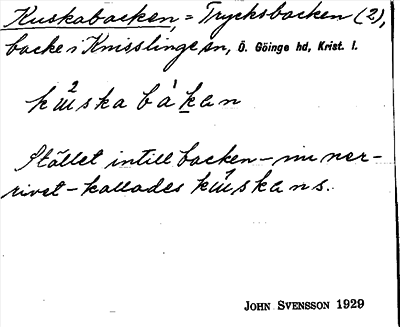 Kuskabacken, = Trycksbacken (2),
backe i Knisslinge sn, Ö. Göinge hd, Krist. l.
kuska bàkan
Stället intill backen – nu ner-
rivet – kallades kuskans.
JOHN SVENSSON 1929